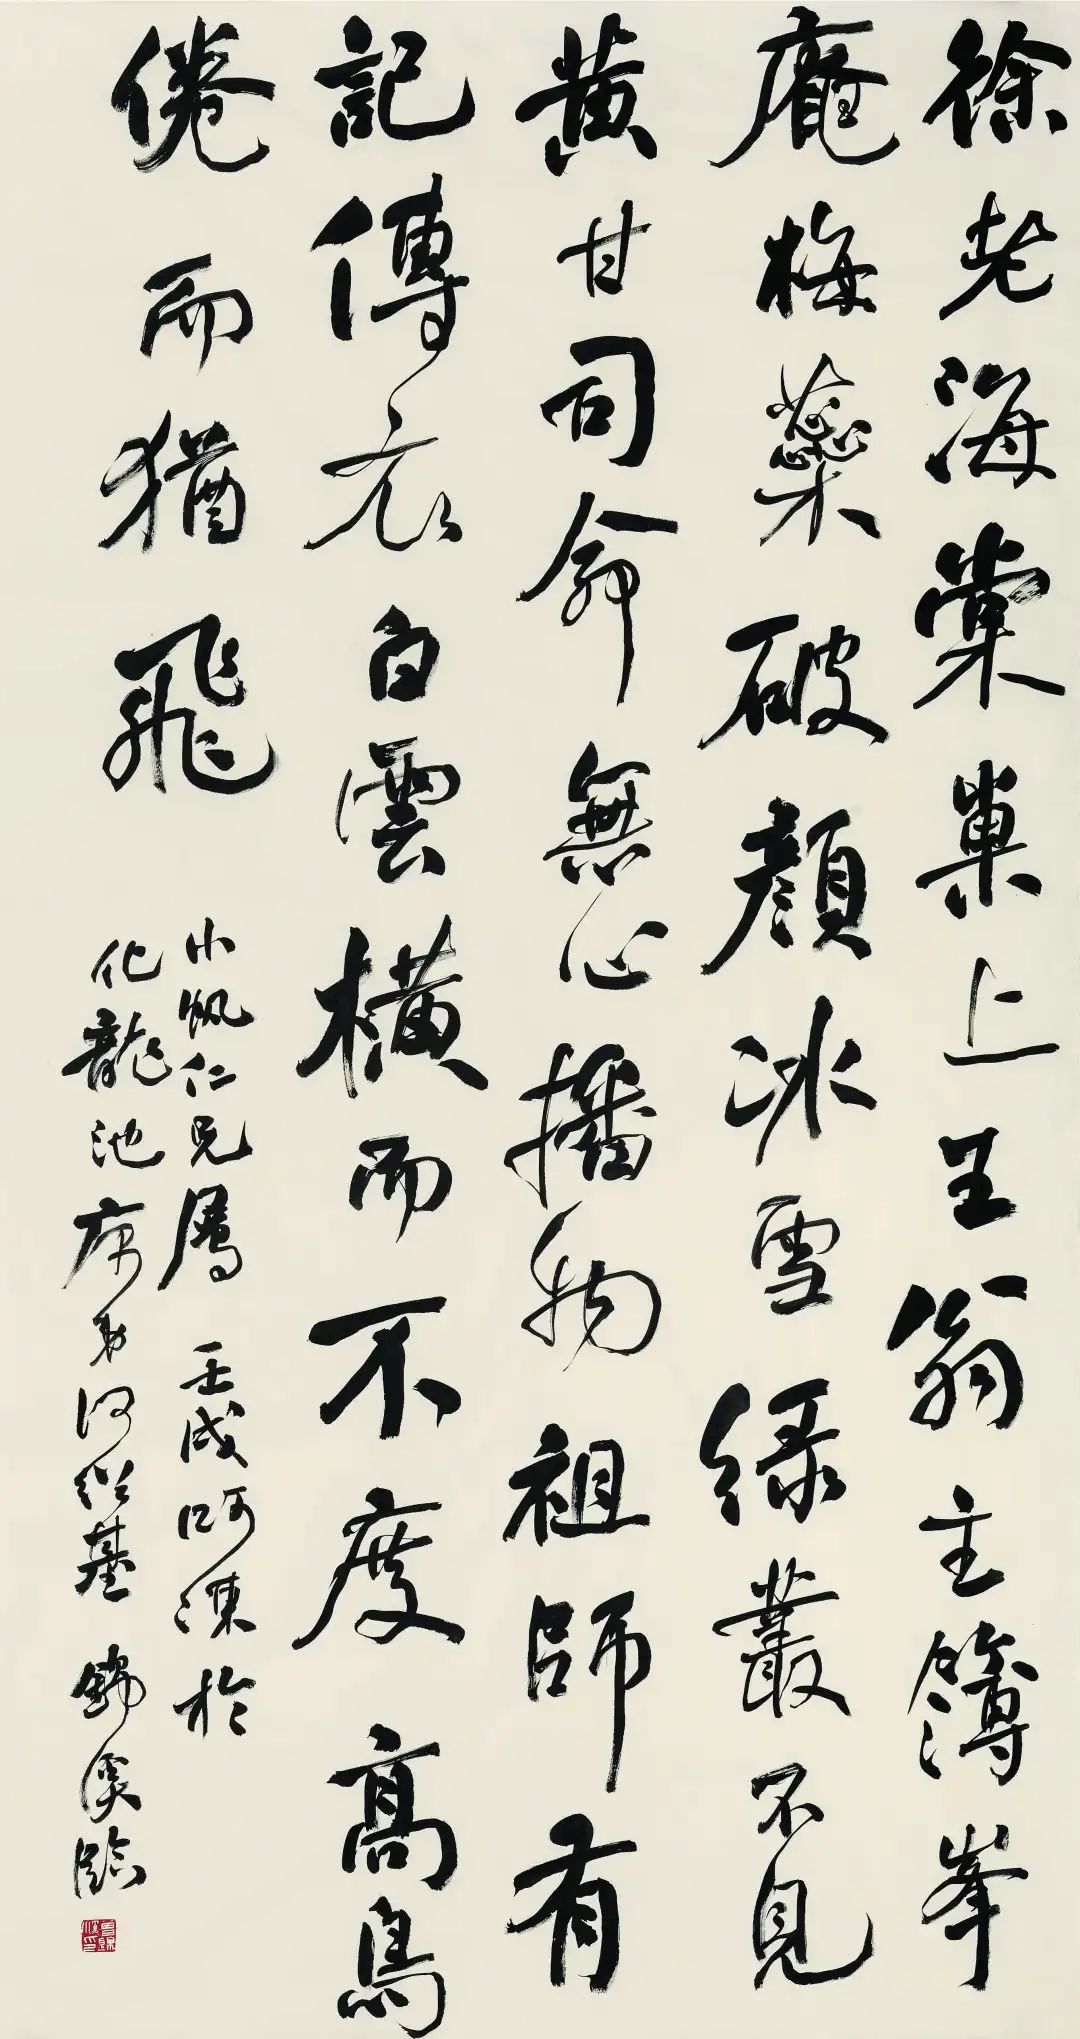 徐老海棠巢上王翁主簿峯
庵梅蘂破顏冰雪綠叢不見
黃甘司命無心播物祖師有
記傳衣白雲橫而不度高鳥
倦而猶飛
小帆仁兄屬 壬戌呵凍於
化龍池 弟何紹基 臨